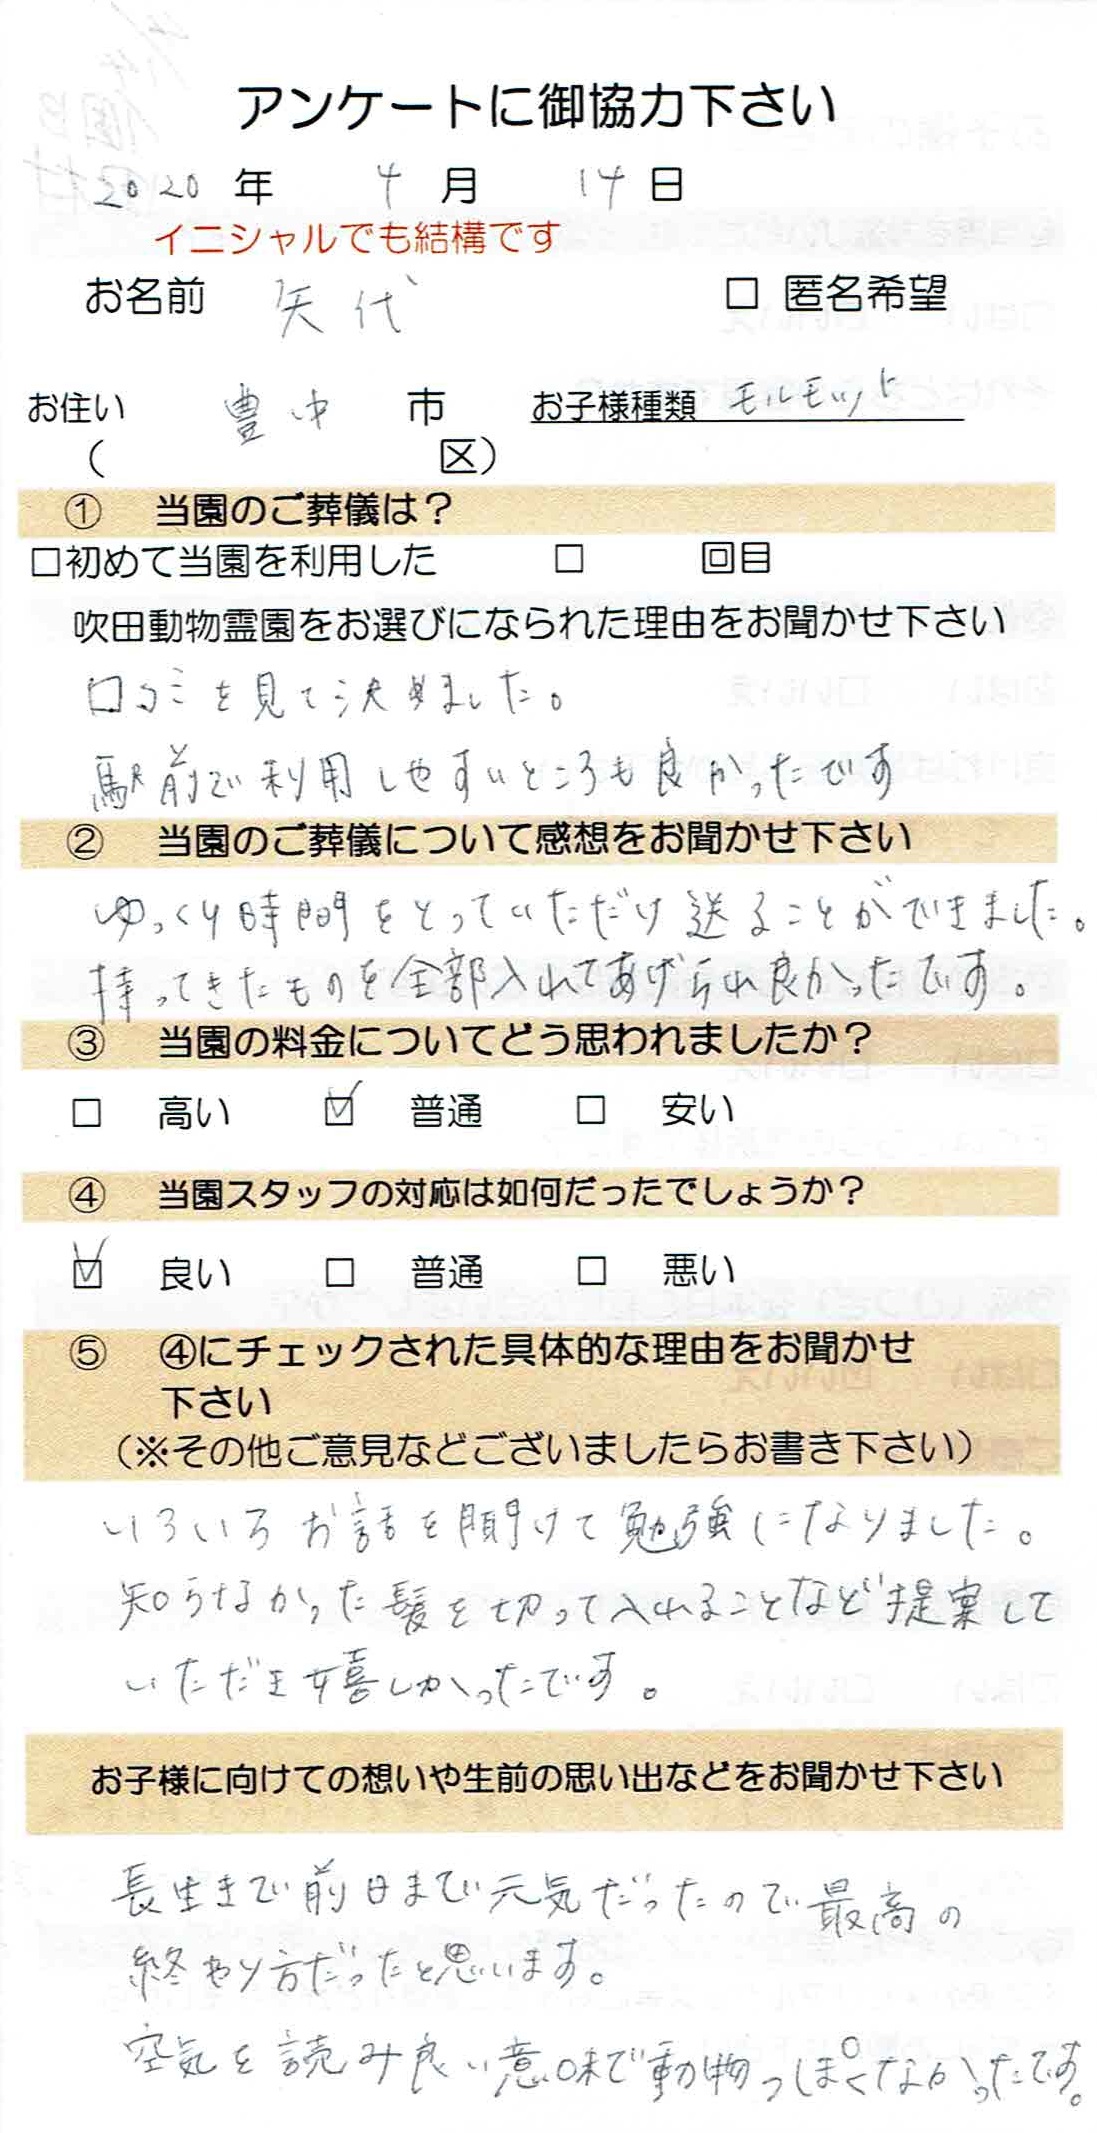 アンケートに御協力下さい
2020 年 4 月 14 日
イニシャルでも結構です
お名前 矢代 □ 匿名希望
お住い 豊中 市 お子様種類 モルモット
( 区)
① 当園のご葬儀は？
□初めて当園を利用した □ 回目
吹田動物霊園をお選びになられた理由をお聞かせ下さい
口コミを見て決めました。
駅前で利用しやすいところも良かったです
② 当園のご葬儀について感想をお聞かせ下さい
ゆっくり時間をとっていただけ送ることができました。
持ってきたものを全部入れてあげられ良かったです。
③ 当園の料金についてどう思われましたか？
□ 高い ☑ 普通 □ 安い
④ 当園スタッフの対応は如何だったでしょうか？
☑ 良い □ 普通 □ 悪い
⑤ ④にチェックされた具体的な理由をお聞かせ
下さい
（※その他ご意見などございましたらお書き下さい）
いろいろお話を聞けて勉強になりました。
知らなかった髪を切って入れることなど提案して
いただき嬉しかったです。
お子様に向けての想いや生前の思い出などをお聞かせ下さい
長生きで前日まで元気だったので最高の
終わり方だったと思います。
空気を読み良い意味で動物っぽくなかったです。